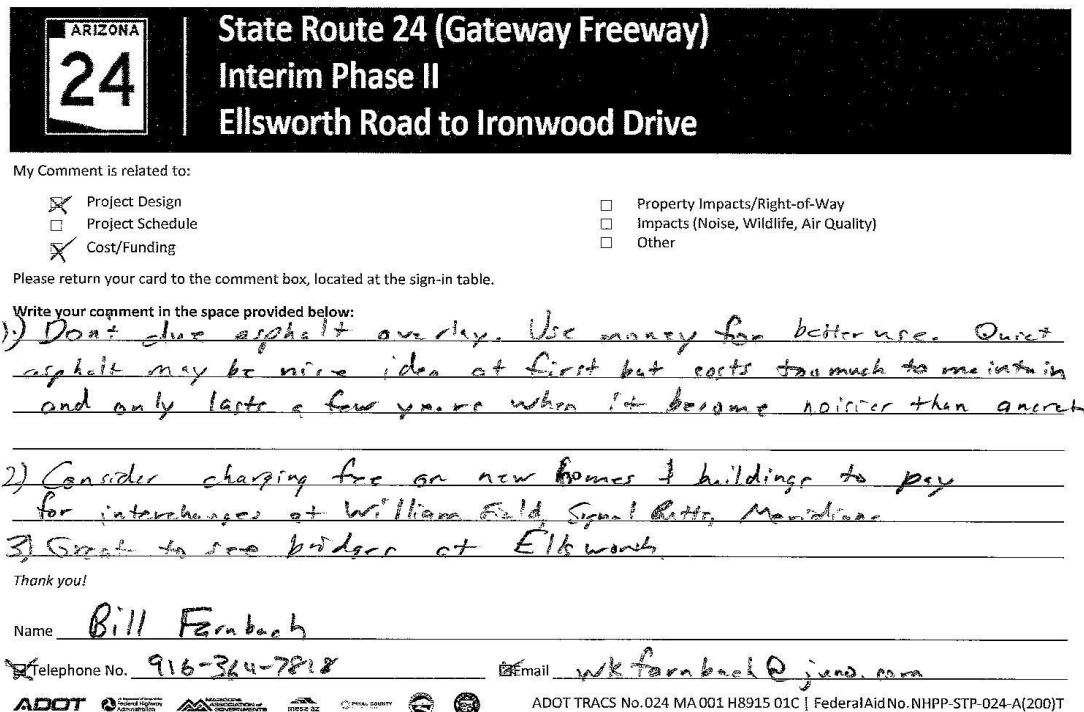 ARIZONA
24
State Route 24 (Gateway Freeway)
Interim Phase II
Ellsworth Road to Ironwood Drive
My Comment is related to:
Project Design
Project Schedule
Cost/Funding
Property Impacts/Right-of-Way
Impacts (Noise, Wildlife, Air Quality)
Other
Please return your card to the comment box, located at the sign-in table.
Write your comment in the space provided below:
1.) Don't asphalt overlay. Use money for better use. Quiet
asphalt may be nice idea at first but costs too much to maintain
and only lasts a few years when it become noisier than
2) Consider charging fee on new homes & buildings to pay
for interchanges at William Field, Signal Butte, Meridian.
3) Great to see bridges at Ellsworth
Thank you!
Name Bill Farnbach
Telephone No. 916-364-7818
Email wkfarnbach@juno.com
ADOT
ADOT TRACS No.024 MA 001 H8915 01C | Federal Aid No. NHPP-STP-024-A(200)T